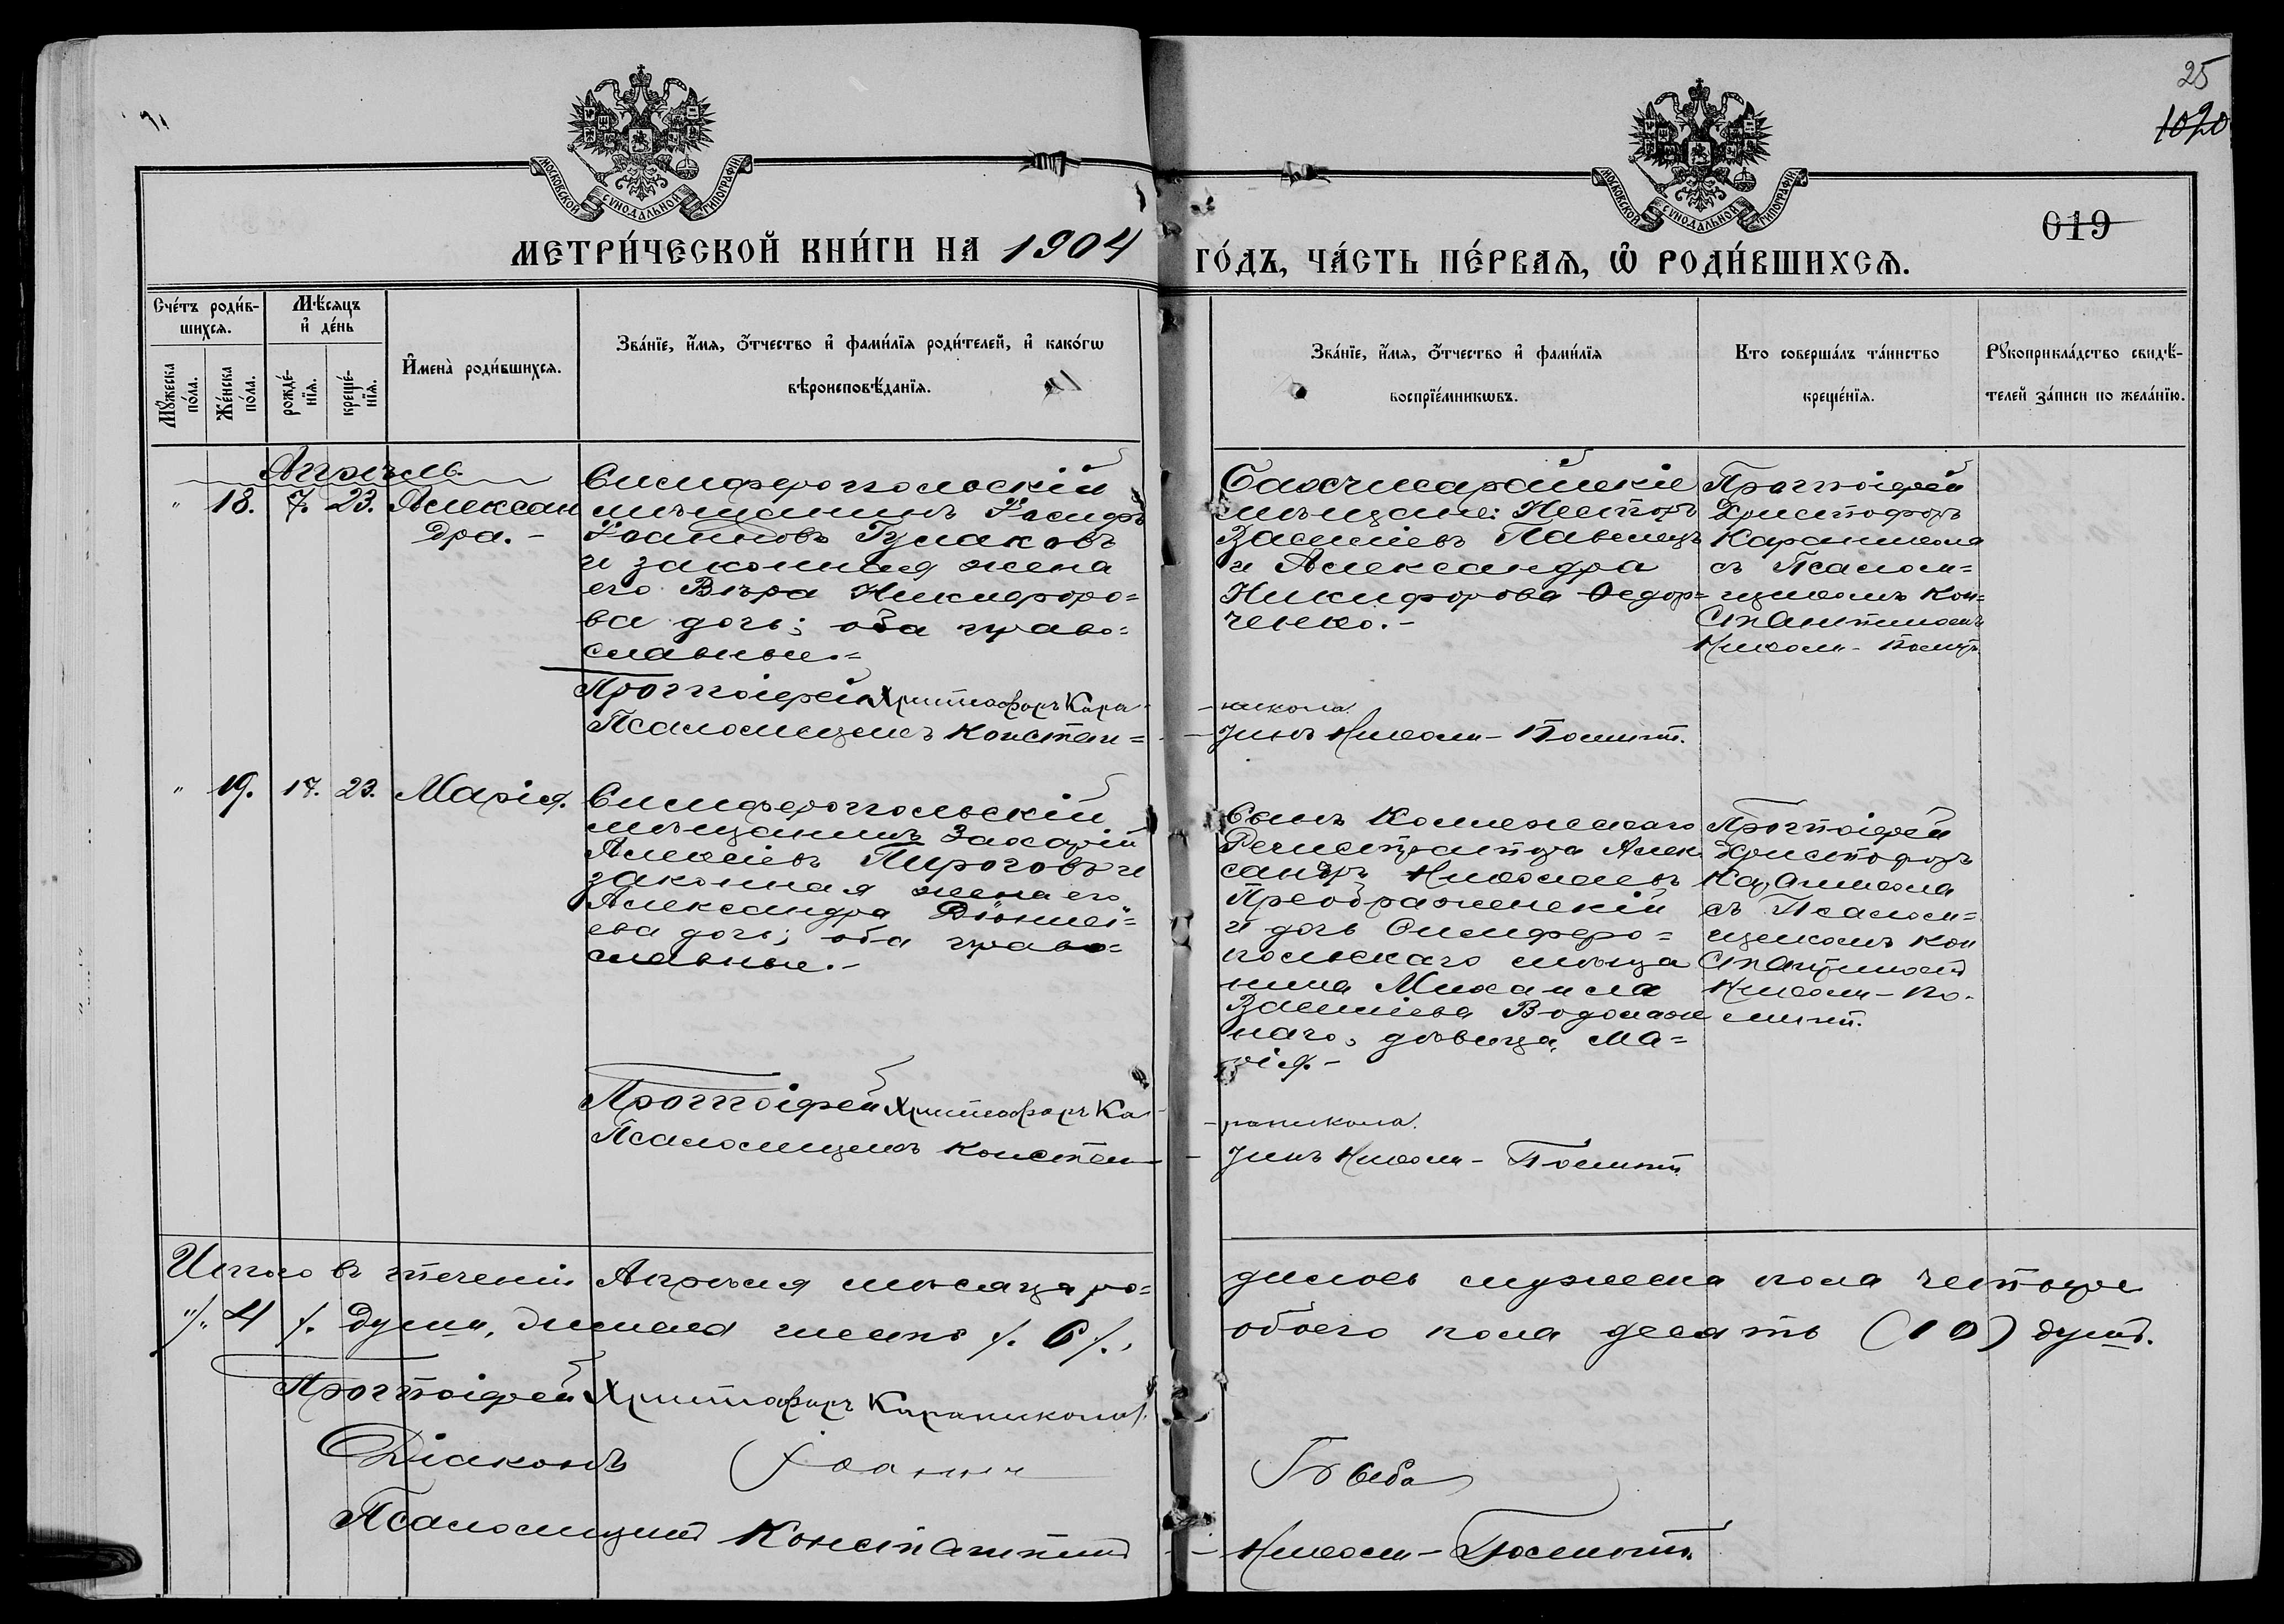 25
1020
019
МОСКОВСКОЙ СѴНОДАЛЬНОЙ ТИПОГРАФІИ
МОСКОВСКОЙ СѴНОДАЛЬНОЙ ТИПОГРАФІИ
МЕТРИ́ЧЕСКОЙ КНИ́ГИ НА 1904
ГО́ДЪ, ЧА́СТЬ ПЕ́РВАЯ, Ѡ҆ РОДИ́ВШИХСЯ.
Сче́тъ роди́в-
шихся.
Мꙋ́жеска по́ла.
Же́нска по́ла.
Мѣ́сяцъ
и҆ де́нь
рожде́-
нїя.
креще́-
нїя.
И҆мена̀ роди́вшихся.
Зва́нїе, и҆́мя, ѻ҆́тчество и҆ фами́лїя роди́телей, и҆ како́гѡ
вѣроисповѣ́данїя.
Зва́нїе, и҆́мя, ѻ҆́тчество и҆ фами́лїя
воспрїе́мникѡвъ.
Кто соверша́лъ та́инство
креще́нїя.
Рꙋкоприкла́дство свидѣ́-
телей за́писи по жела́нїю.
Апрѣль.
" 18. 7. 23. Алексан
дра. -
Симферопольскій
мѣщанинъ Іосифъ
Іоанновъ Гулаковъ
и законная жена
его Вѣра Никифоро=
ва дочь; оба право=
славные.=
Бахчисарайскіе
мѣщане: Несторъ
Васильевъ Павелецъ
и Александра
Никифорова Федор=
ченко.-
Протоіерей
Христофоръ
Караникола
съ Псалом=
щикомъ Кон=
стантиномъ
Николи-
Протоіерей Христофоръ Кара-
-никола.
Псаломщикъ Констан=
-тинъ Николи-
" 19. 17. 23. Марія.
Симферопольскій
мѣщанинъ Захарій
Алексіевъ Пироговъ и
законная жена его
Александра Діонисі=
ева дочь; оба право=
славные.-
Сынъ Коллежскаго
Регистратора Алек
сандръ Николаевъ
Преображенскій
и дочь Симферо=
польскаго мѣща
нина Михаила
Васильева Водолаж
наго, дѣвица, Ма=
рія.-
Протоіерей
Христофоръ
Караникола
съ Псалом=
щикомъ Кон
стантиномъ
Николи-
Протоіерей Христофоръ Ка-
-раникола.
Псаломщикъ Констан-
-тинъ Николи-
Итого въ теченіи Апрѣля мѣсяца ро=
дилось мужеска пола четыре
/. 4 /. души, женска шесть /. 6 /.,
обоего пола десять (10) душъ.
Протоіерей Христофоръ Караникола.
Діаконъ Іоаннъ
Псаломщикъ Константинъ
- Николи-